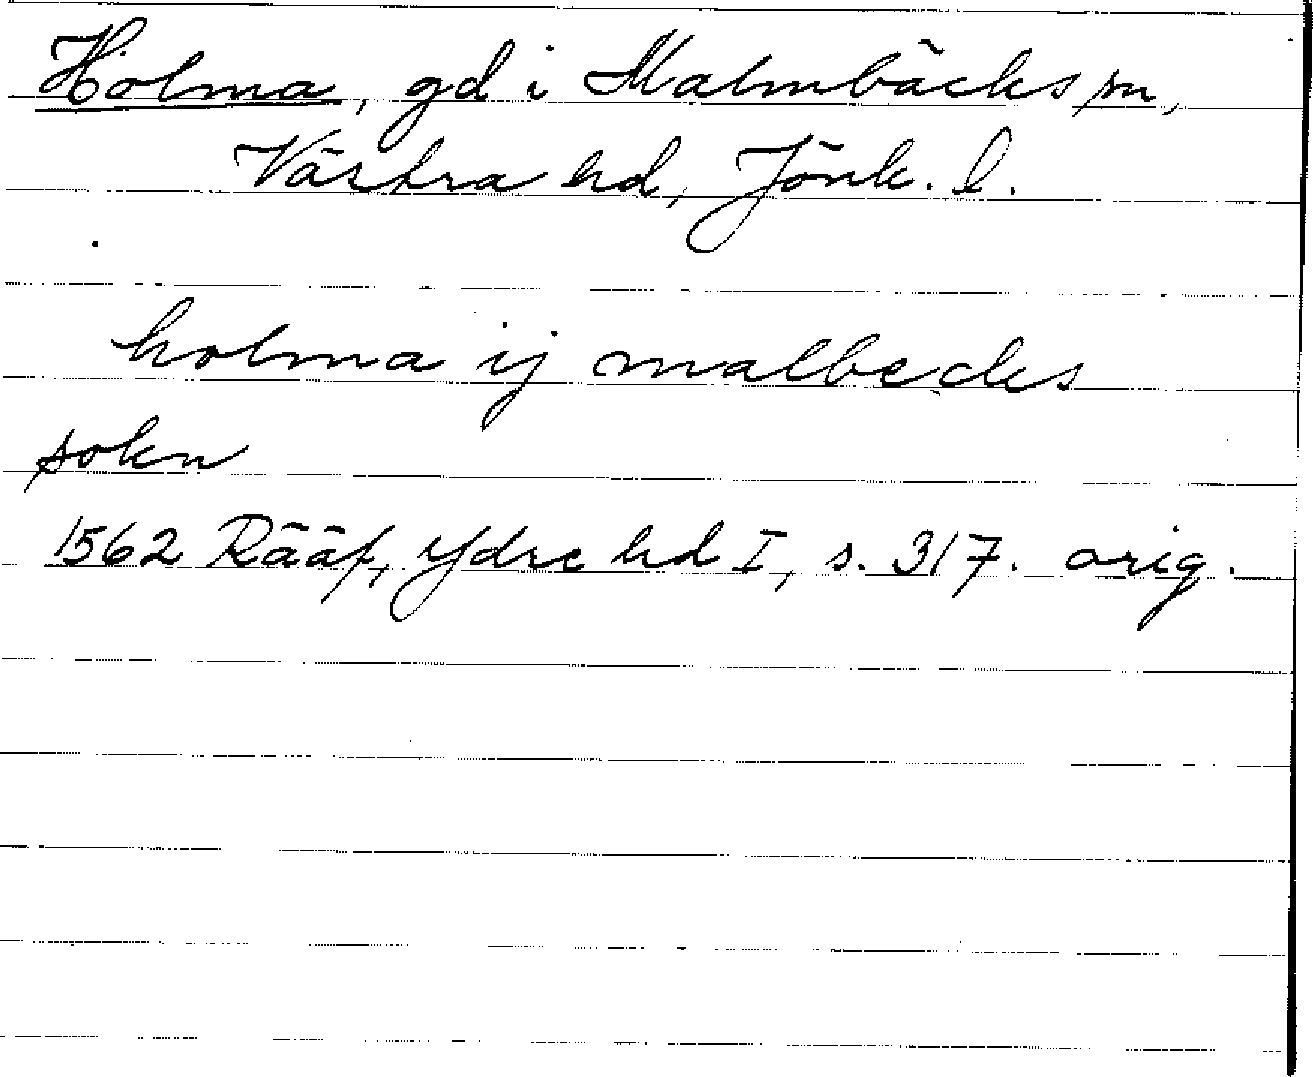 Holma, gd i Malmbäcks sn,
Västra hd, Jönk. l.
holma ij malbecks
sokn
1562 Rääf, Ydre hd I, s. 317. orig.